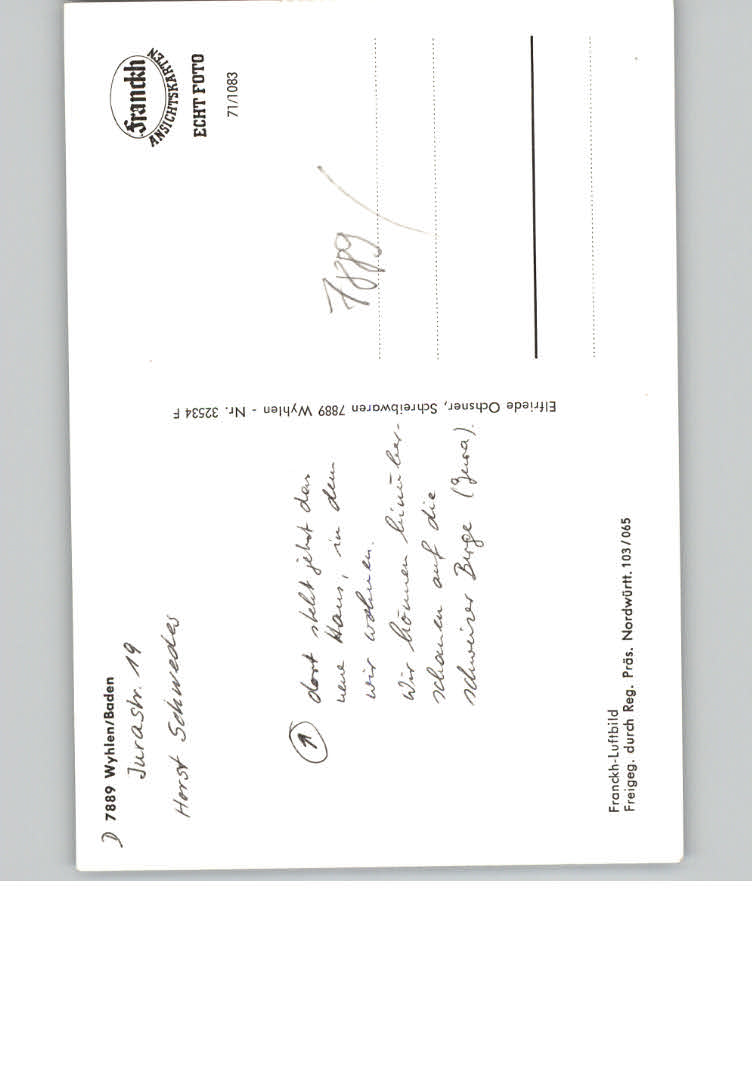 D 7889 Wyhlen/Baden
Jurastr. 19
Horst Schwedes
1 dort steht jetzt das
neue Haus, in dem
wir wohnen.
Wir können hinüber-
schauen auf die
schweizer Berge (Jura).
Franckh-Luftbild
Freigeg. durch Reg. Präs. Nordwürtt. 103/065
Elfriede Ochsner, Schreibwaren 7889 Wyhlen - Nr. 32534 F
Franckh
ANSICHTSKARTEN
ECHT FOTO
71/1083
7889